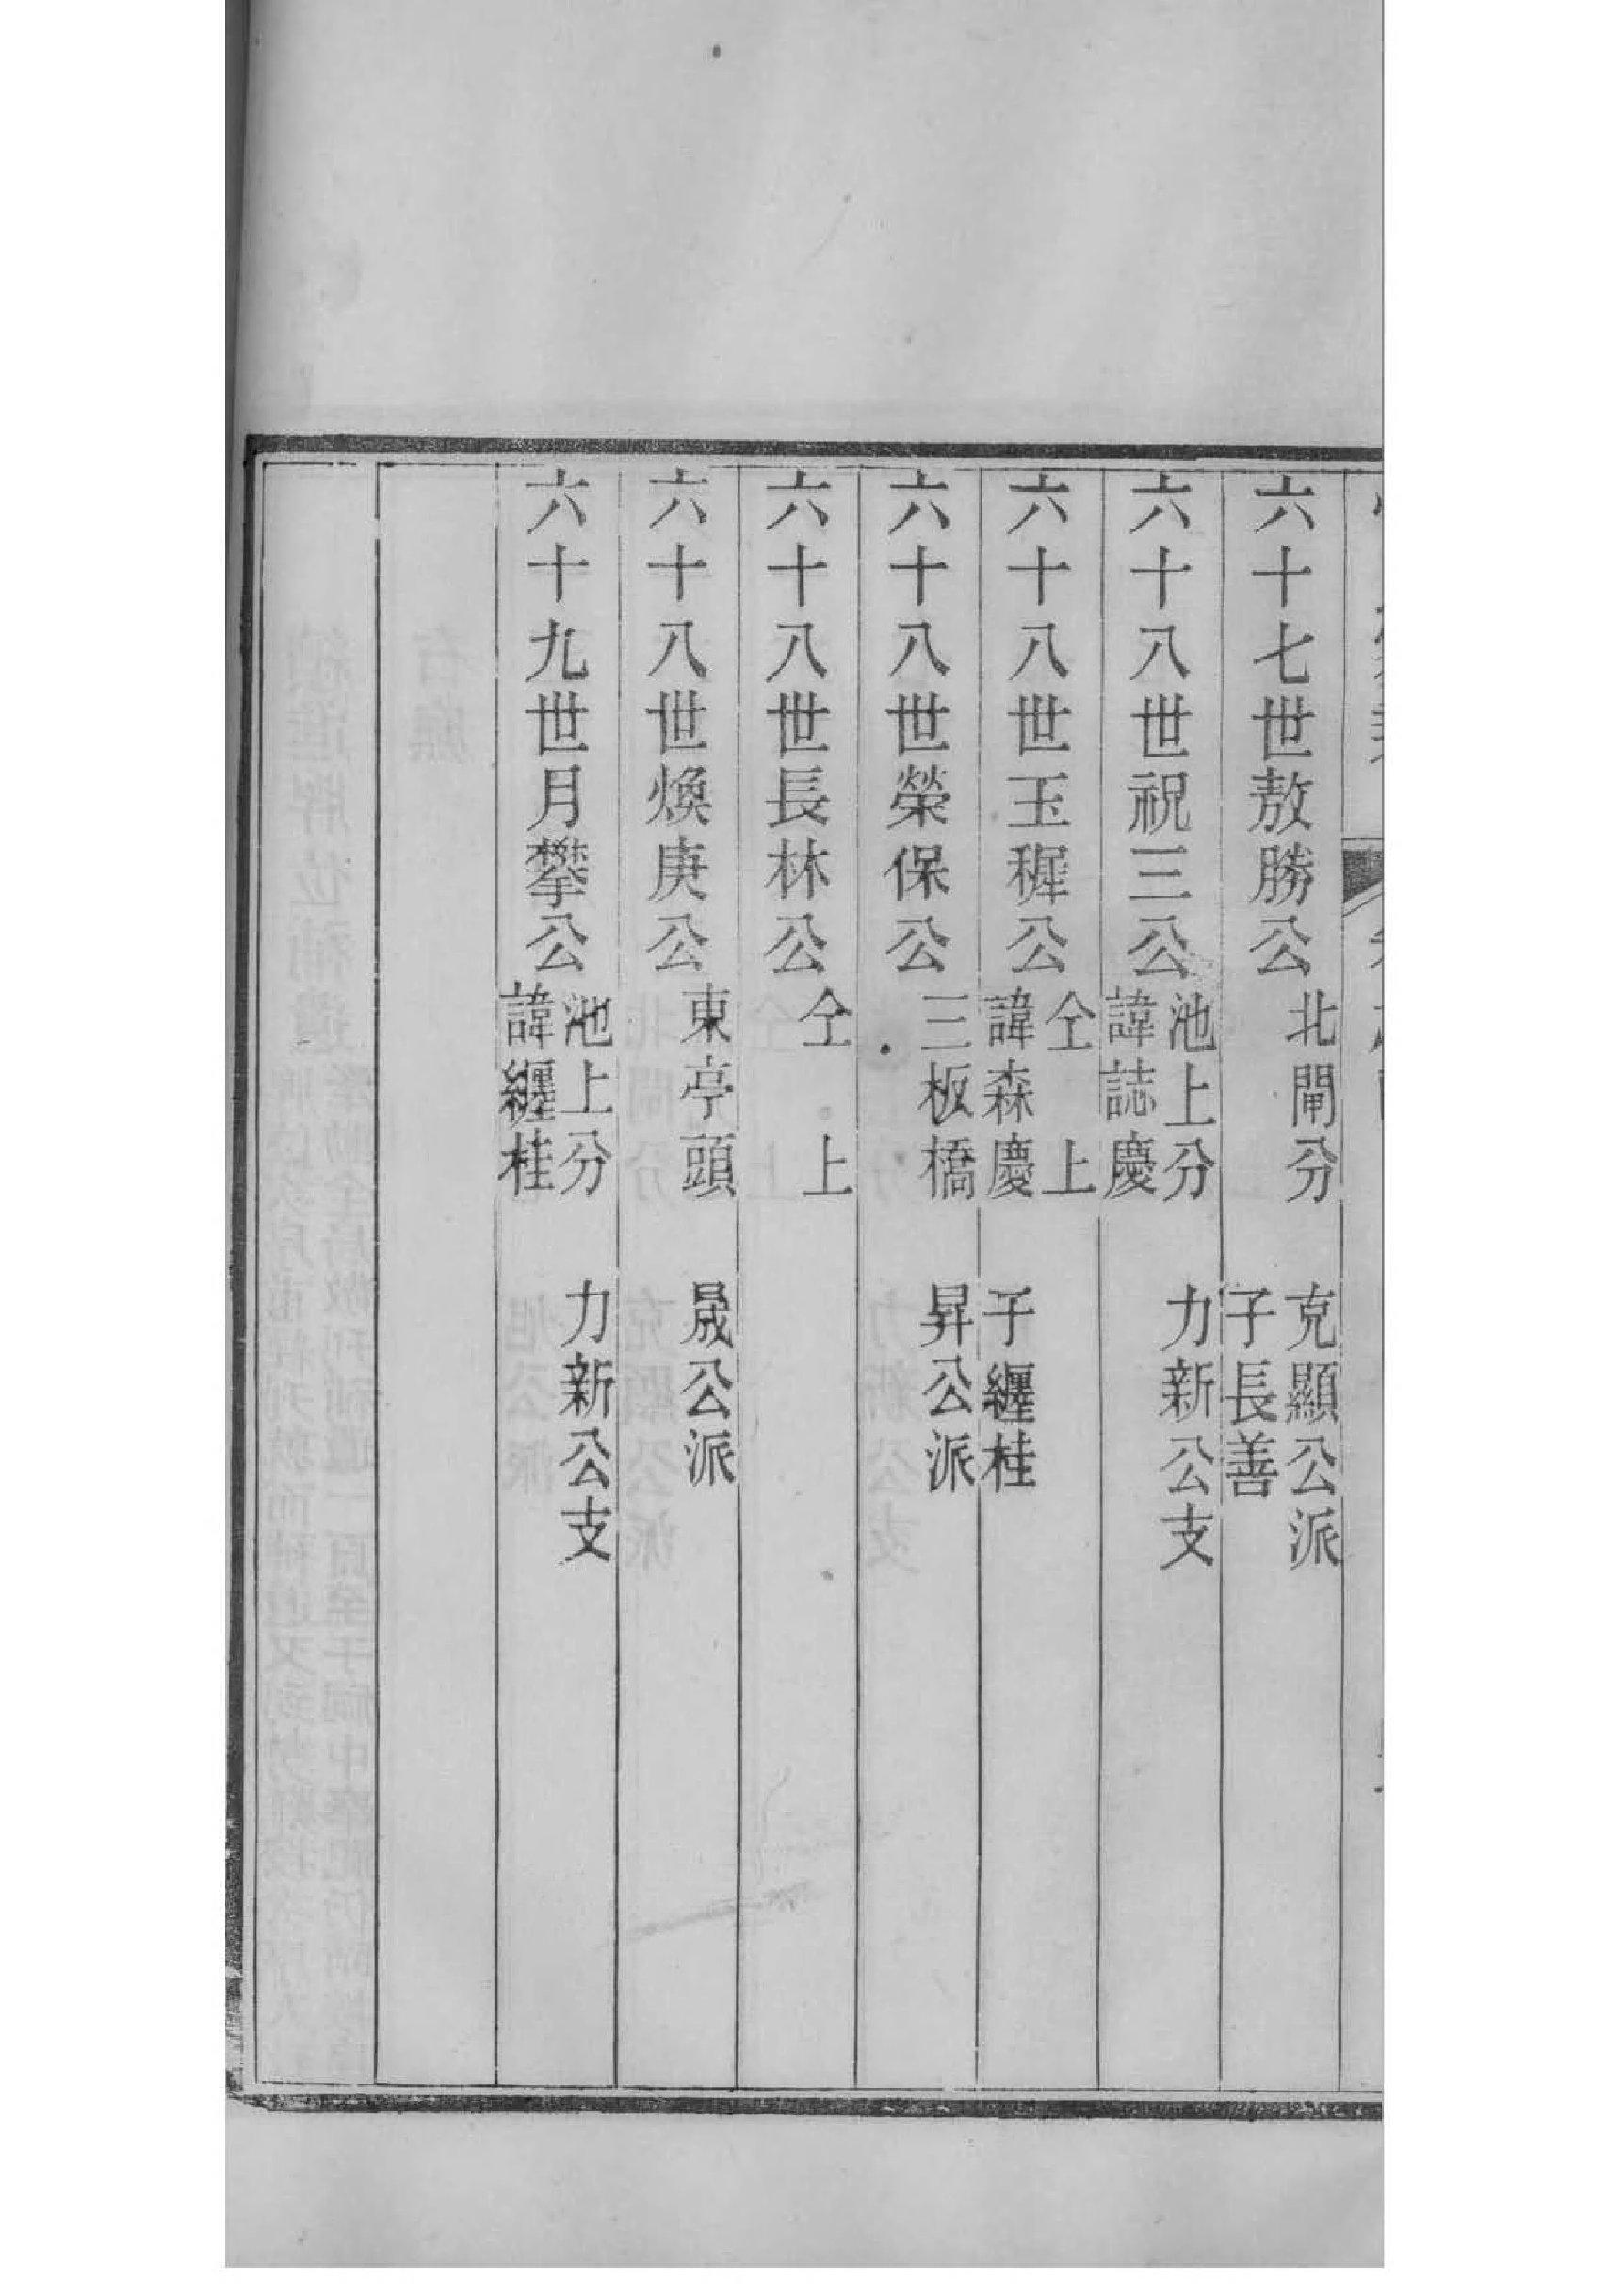 六十七世敖勝公 北閘分 克顯公派
子長善
六十八世祝三公 池上分 力新公支
諱誌慶
六十八世玉穉公 仝上
諱森慶 子纏桂
六十八世榮保公 三板橋 昇公派
六十八世長林公 仝上
六十八世煥庚公 東亭頭 晟公派
六十九世月攀公 池上分 力新公支
諱纏桂